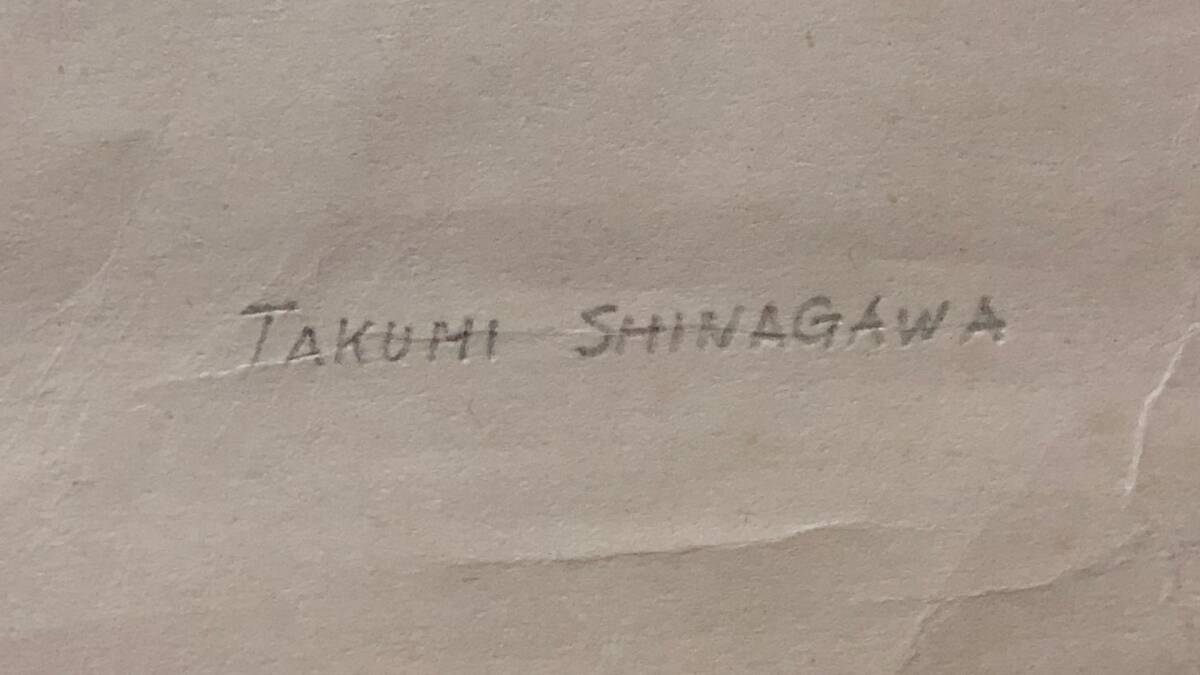 TAKUMI SHINAGAWA